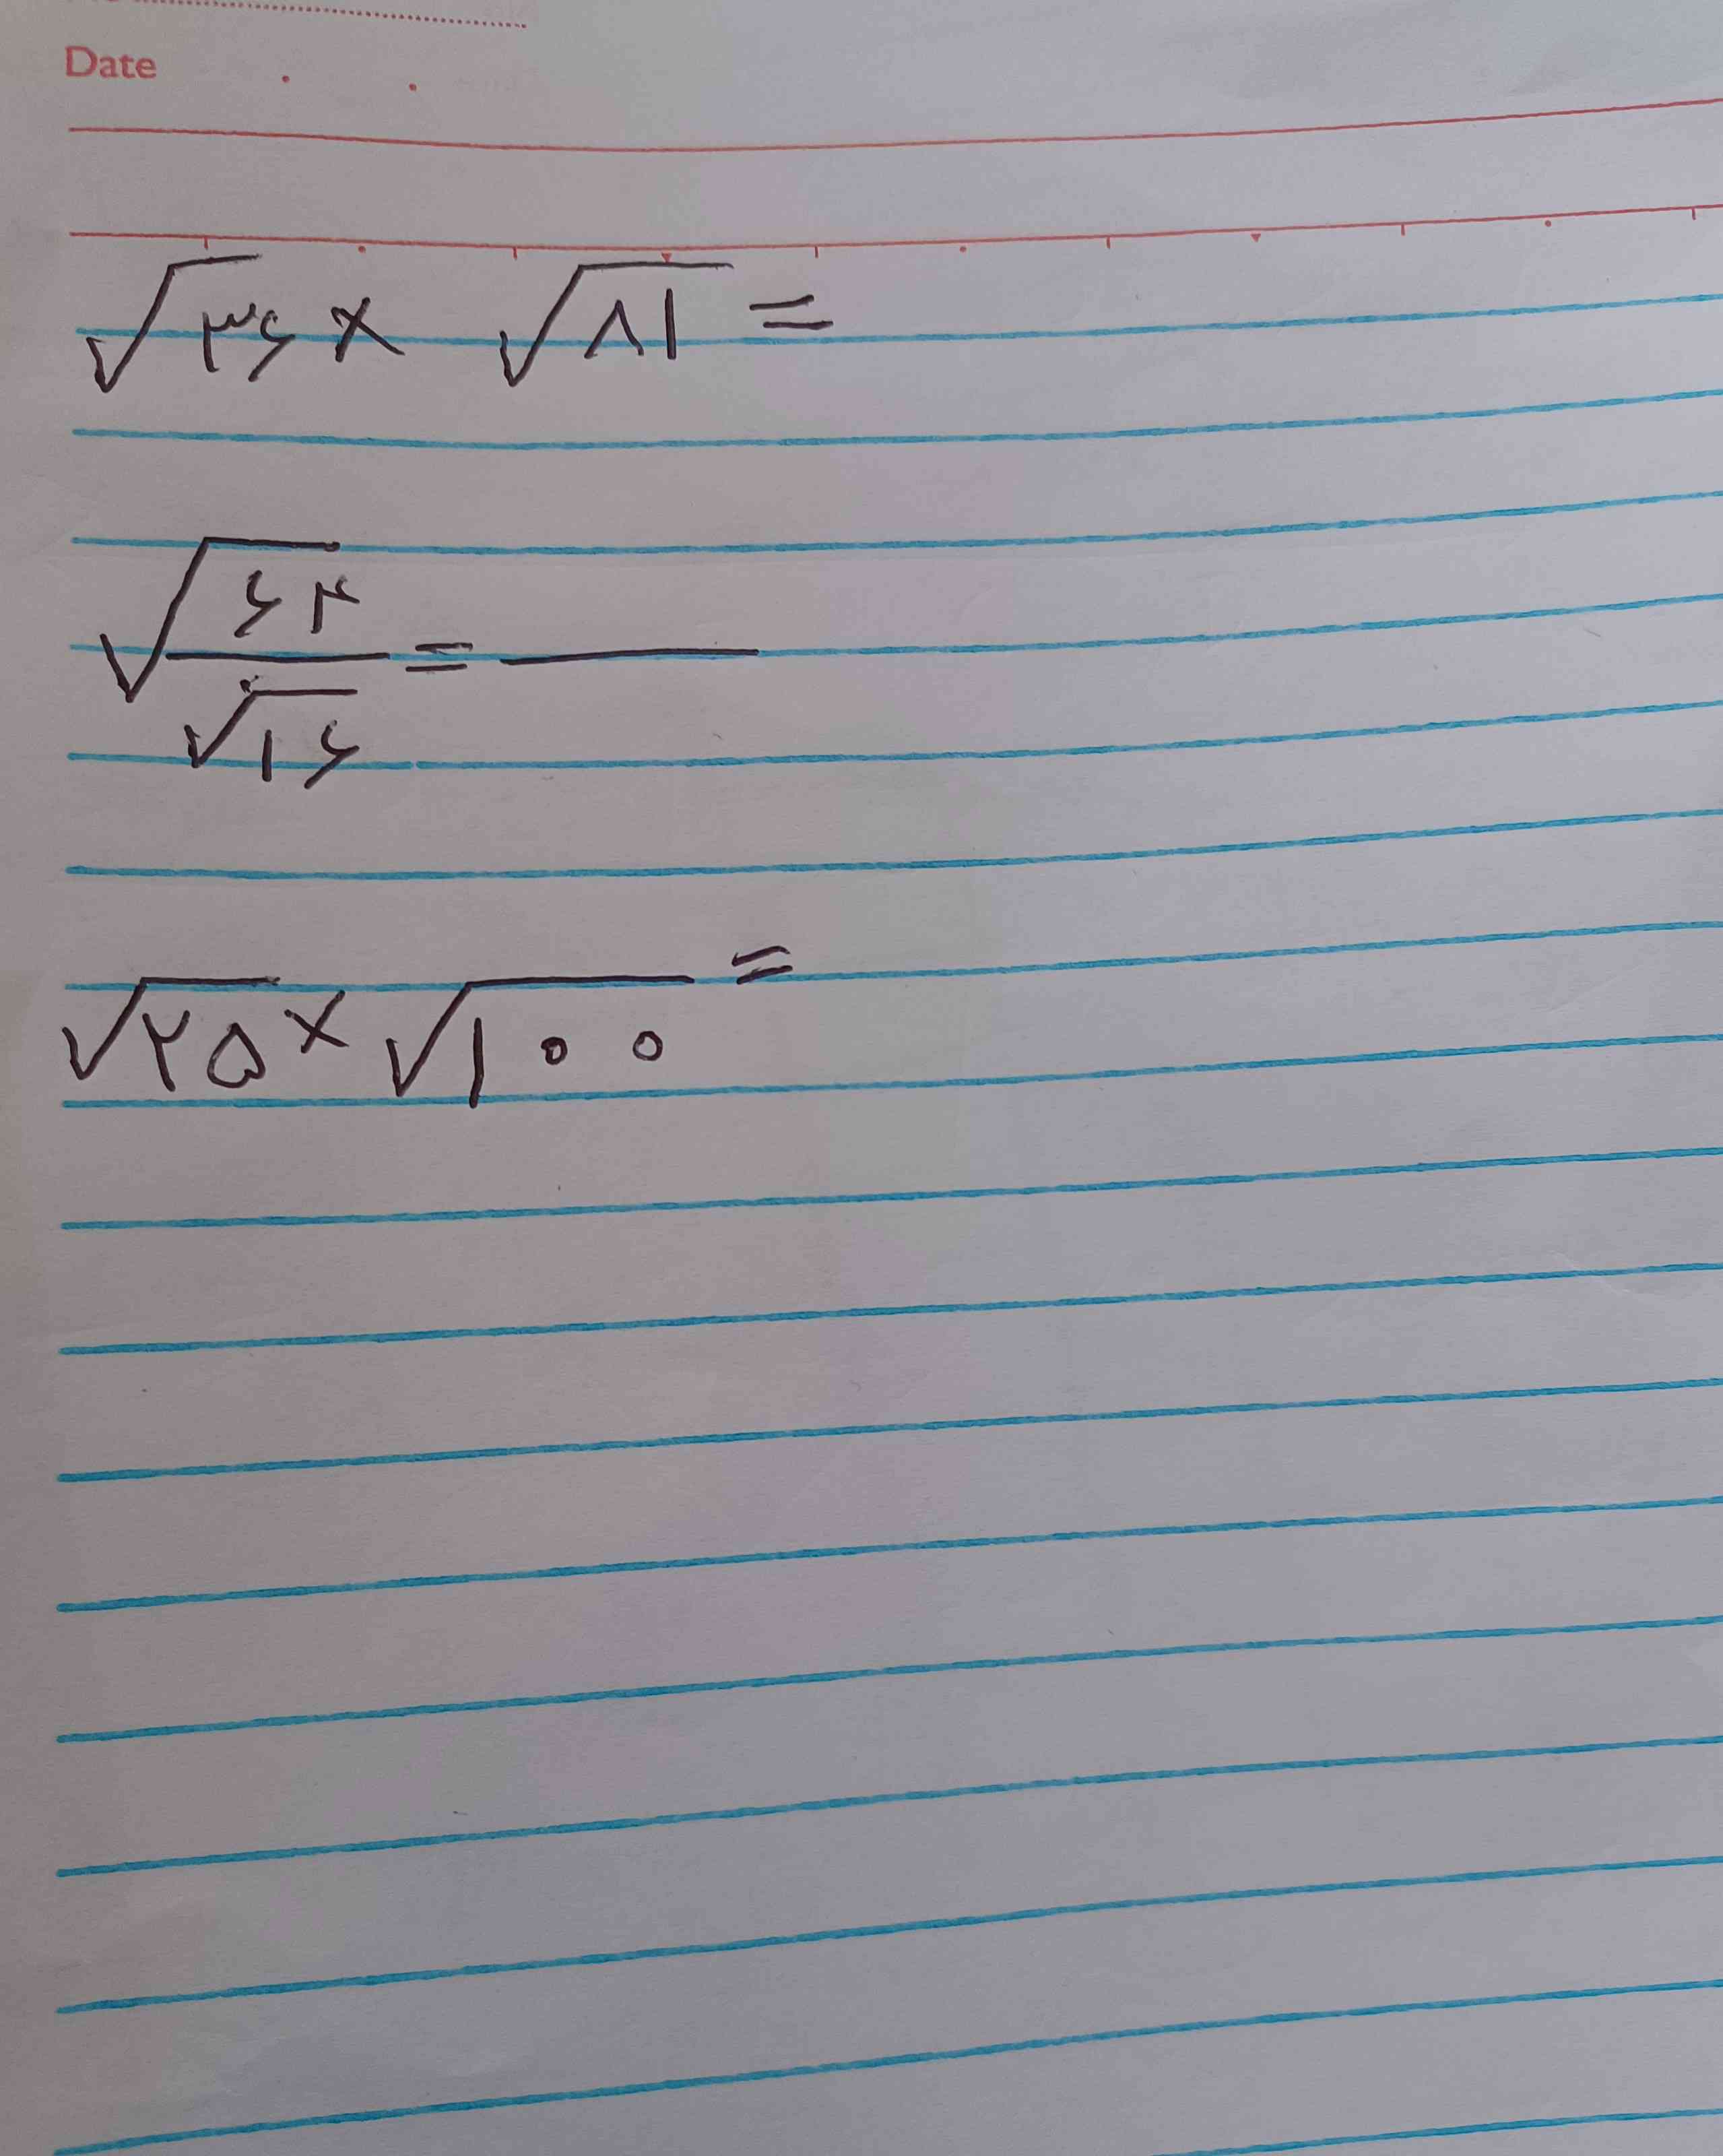 Date
√۳۶ × √۸۱ =
√۶۴
―― = ――
√۱۶
√۲۵ × √۱۰۰ =